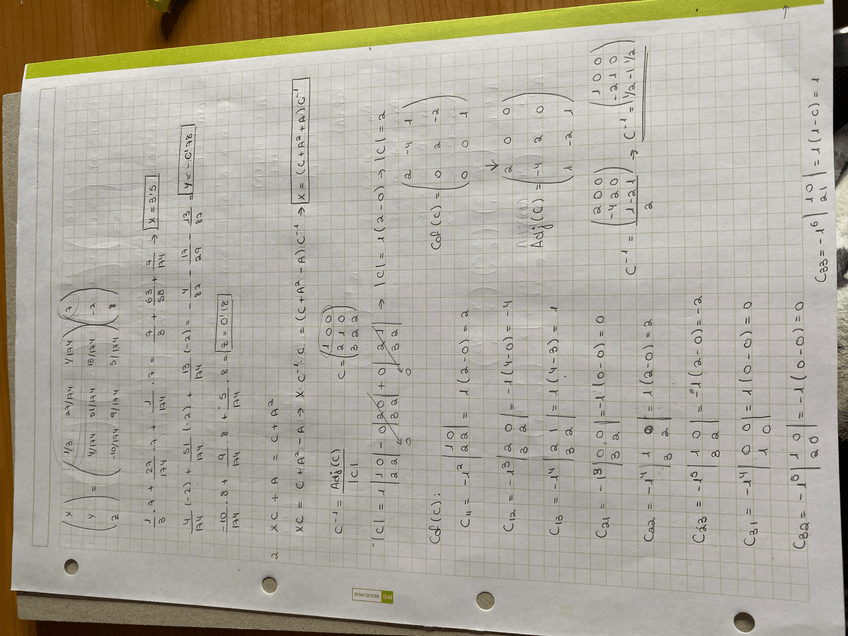 (x y z) = (1/3 27/174 1/174 4/174 51/174 13/174 -10/174 9/174 5/174) (7 -2 8)
1/3 · 7 + 27/174 · 7 + 1/174 · 7 = 7/3 + 63/58 + 7/174 → x = 3'5
4/174 (-2) + 51/174 (-2) + 13/174 (-2) = - 4/87 - 17/29 - 13/87 = y = -0'78
-10/174 · 8 + 9/174 · 8 + 5/174 · 8 = z = 0'18
2. XC + A = C + A²
XC = C + A² - A → X · C⁻¹ · C = (C + A² - A) C⁻¹ → X = (C + A² + A) C⁻¹
C⁻¹ = Adj(C) / |C| C = (1 0 0 2 1 0 3 2 2)
|C| = 1 |1 0 2 2| - 0 |2 0 3 2| + 0 |2 1 3 2| → |C| = 1 (2-0) → |C| = 2
Cof(C):
C₁₁ = -1² |1 0 2 2| = 1 (2-0) = 2
C₁₂ = -1³ |2 0 3 2| = -1 (4-0) = -4
C₁₃ = -1⁴ |2 1 3 2| = 1 (4-3) = 1
C₂₁ = -1³ |0 0 3 2| = -1 (0-0) = 0
C₂₂ = -1⁴ |1 0 3 2| = 1 (2-0) = 2
C₂₃ = -1⁵ |1 0 3 2| = -1 (2-0) = -2
C₃₁ = -1⁴ |0 0 1 0| = 1 (0-0) = 0
C₃₂ = -1⁵ |1 0 2 0| = -1 (0-0) = 0
C₃₃ = -1⁶ |1 0 2 1| = 1 (1-0) = 1
Cof(C) = (2 -4 1 0 2 -2 0 0 1)
Adj(C) = (2 0 0 -4 2 0 1 -2 1)
C⁻¹ = (2 0 0 -4 2 0 1 -2 1) / 2 → C⁻¹ = (1 0 0 -2 1 0 1/2 -1 1/2)